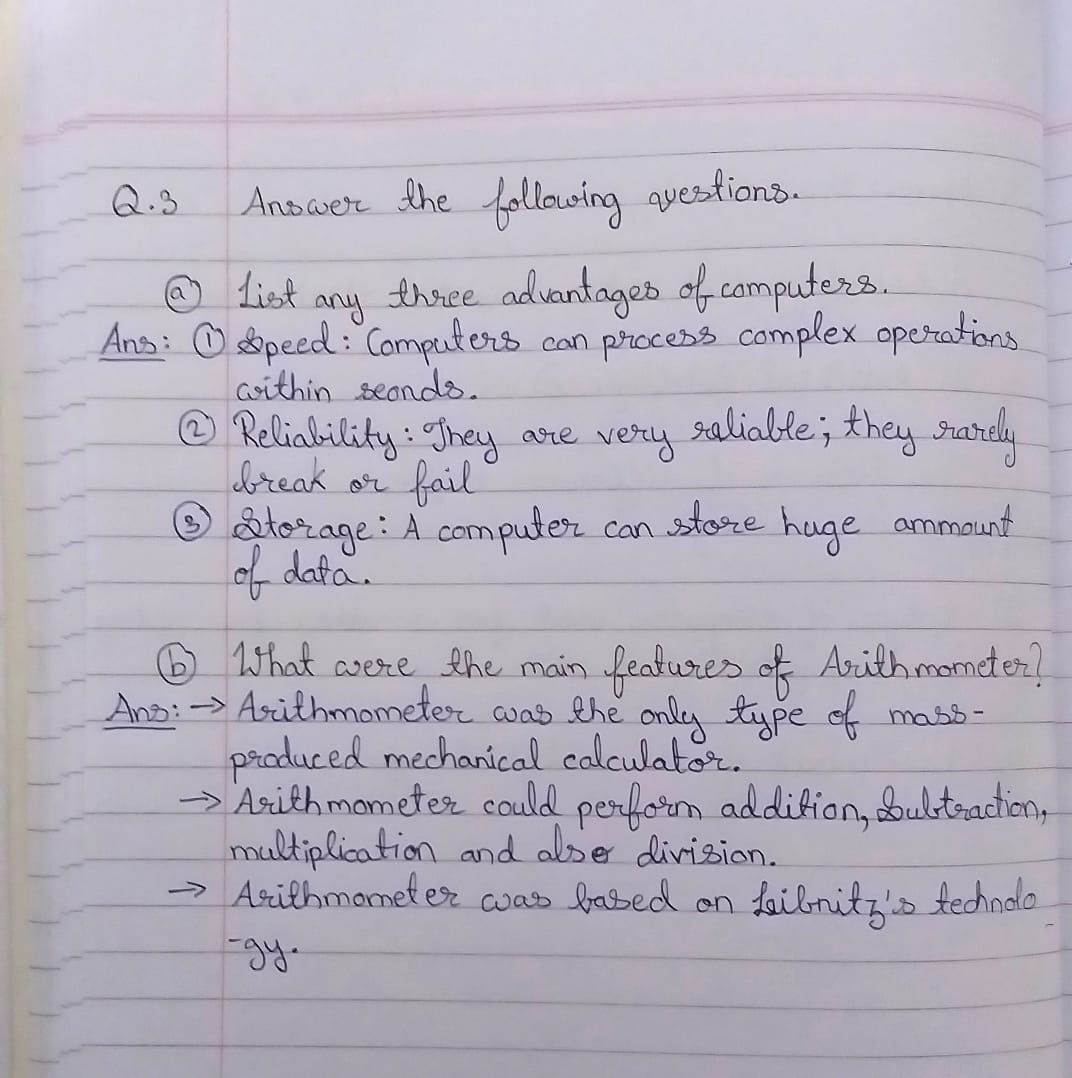 Q.3 Answer the following questions.
(a) List any three advantages of computers.
Ans: (1) Speed: Computers can process complex operations
within seonds.
(2) Reliability: They are very raliable; they rarely
break or fail
(3) Storage: A computer can store huge ammount
of data.
(b) What were the main features of Arithmometer?
Ans: → Arithmometer was the only type of mass-
produced mechanical calculator.
→ Arithmometer could perform addition, Subtraction,
multiplication and also division.
→ Arithmometer was based on Leibnitz's technolo
-gy.